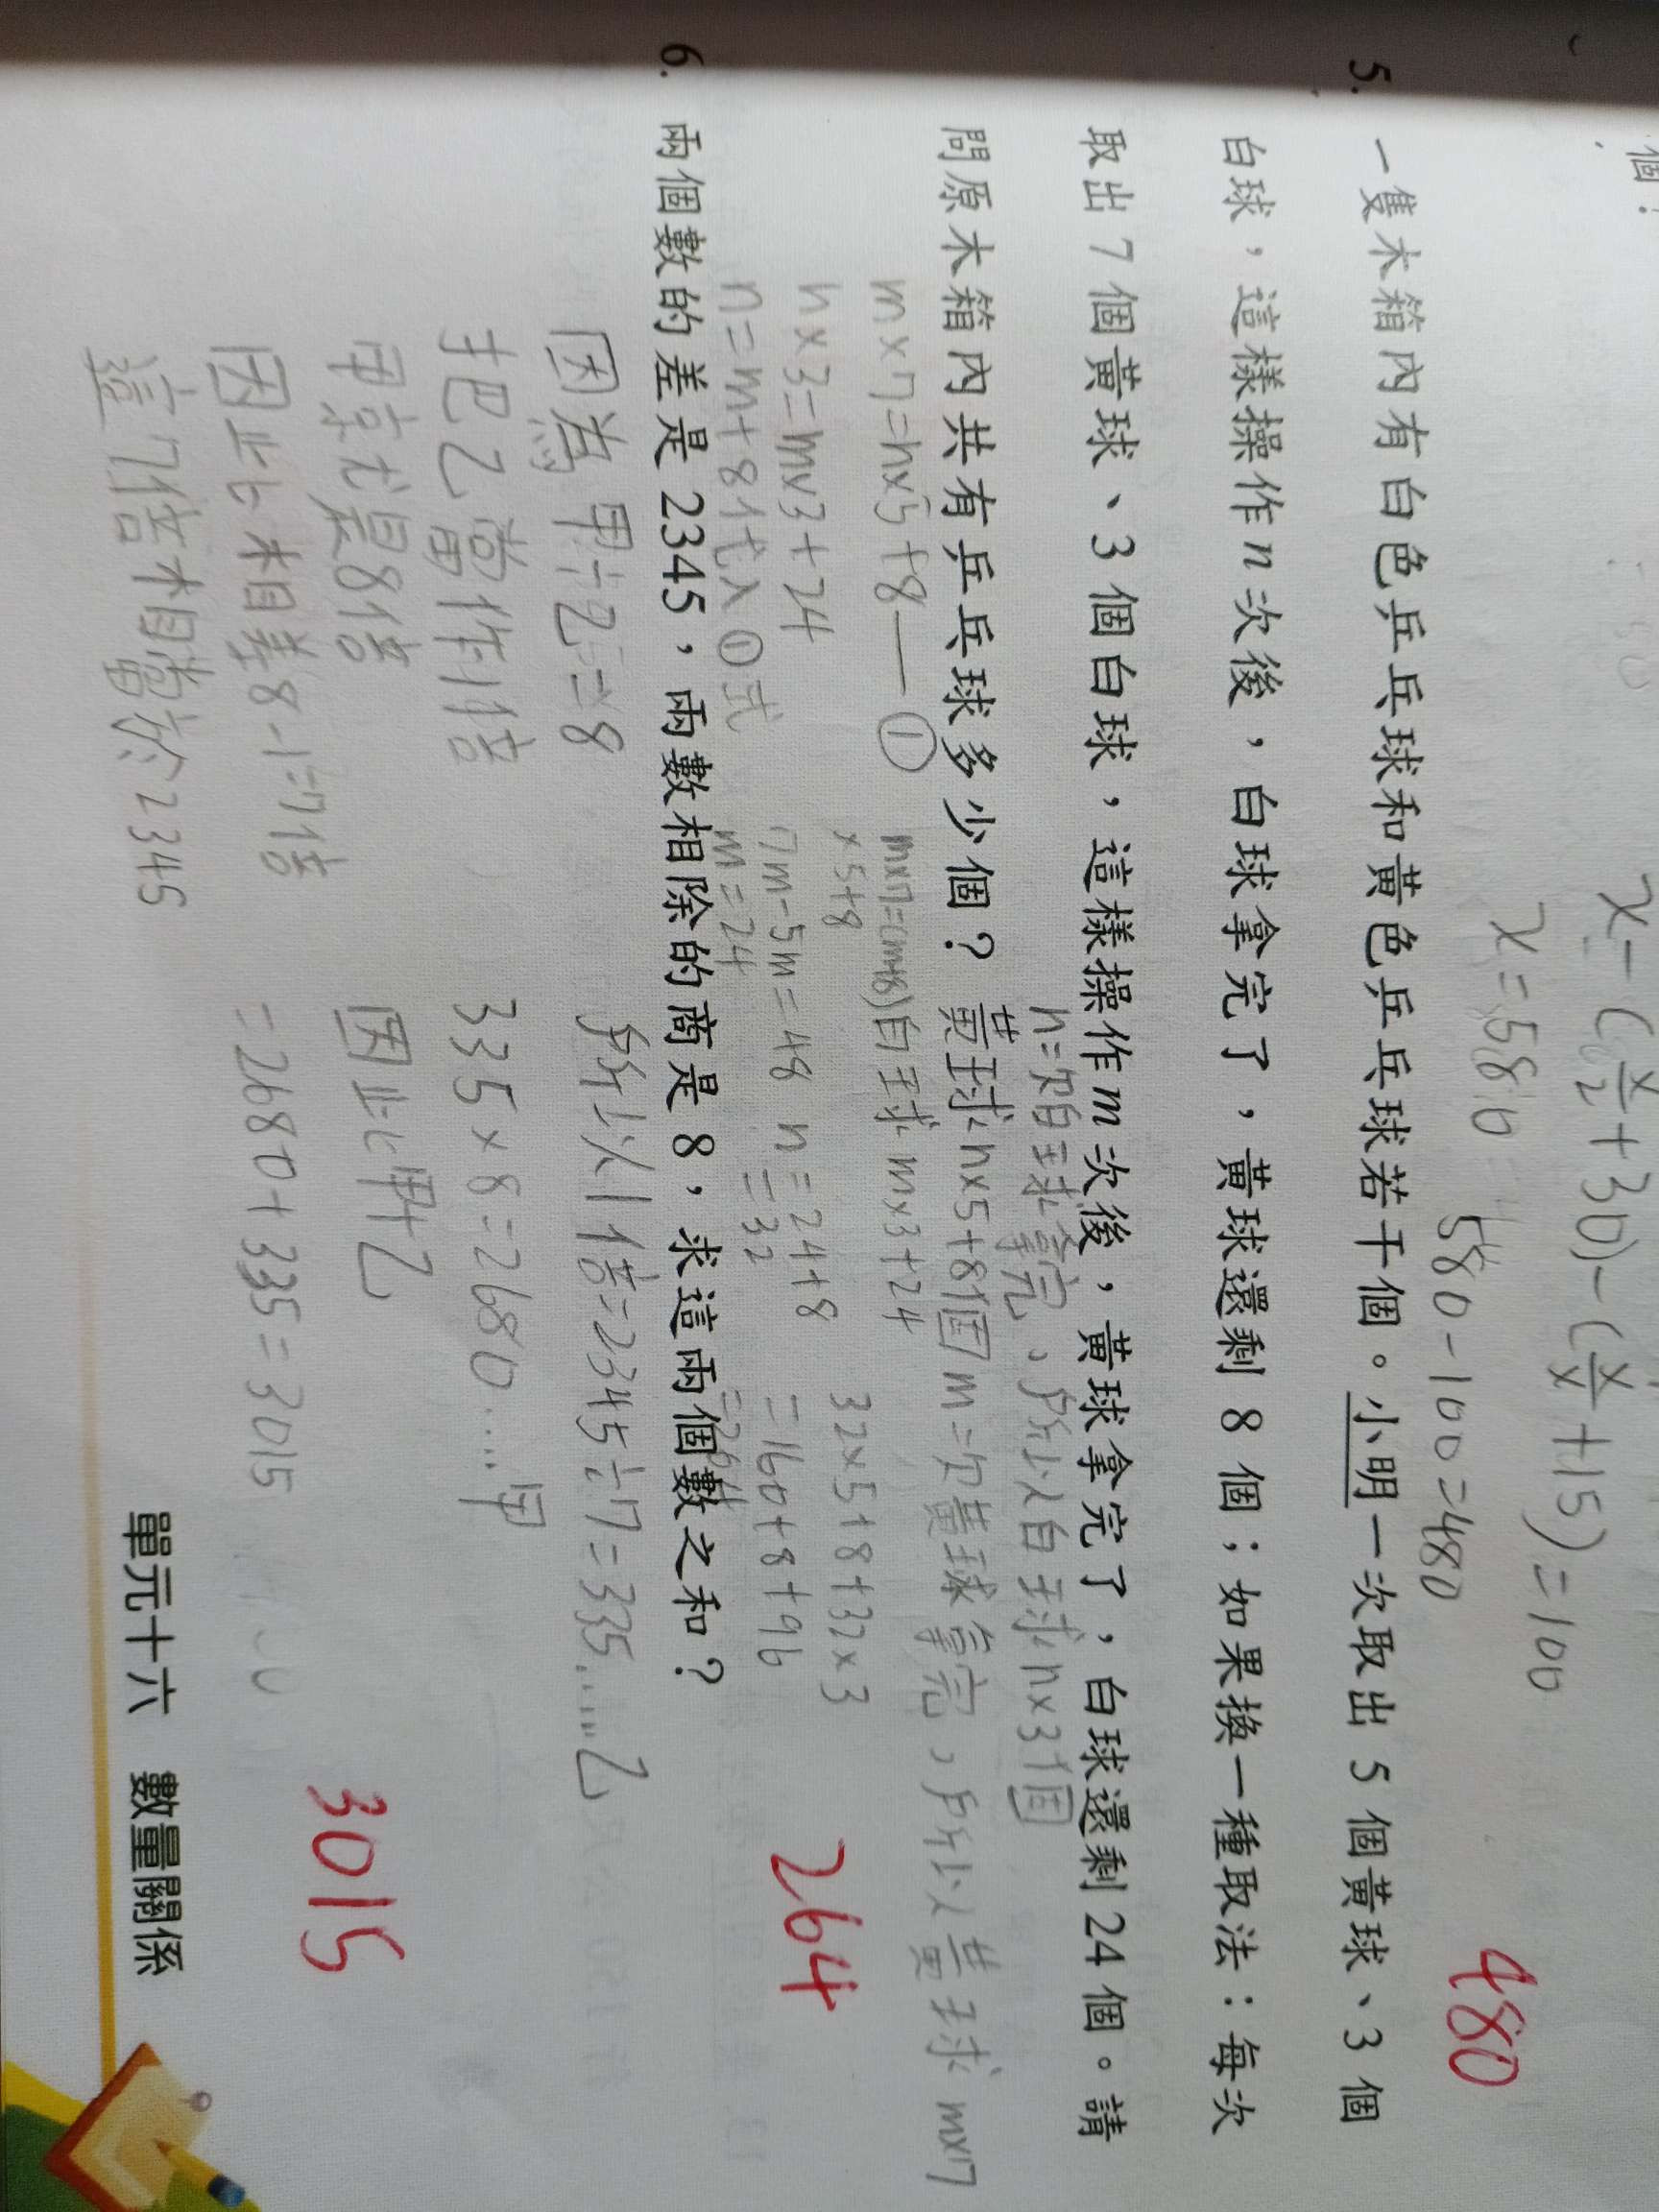 個？
x-(x/2+30)-(x/x+15)=100
x=580
580-100=480
480
5. 一隻木箱內有白色乒乓球和黃色乒乓球若干個。小明一次取出 5 個黃球、3 個
白球，這樣操作 n 次後，白球拿完了，黃球還剩 8 個；如果換一種取法：每次
取出 7 個黃球、3 個白球，這樣操作 m 次後，黃球拿完了，白球還剩 24 個。請
問原木箱內共有乒乓球多少個？
n=次白球拿完，所以白球n×3個
黃球n×5+8個 m=次黃球拿完，所以黃球m×7
白球m×3+24
m×7=n×5+8——①
n×3=m×3+24
n=m+8代入①式
m×7=(m+8)
×5+8
7m-5m=48
m=24
n=24+8
=32
32×5+8+32×3
=160+8+96
=264
264
6. 兩個數的差是 2345，兩數相除的商是 8，求這兩個數之和？
因為甲÷乙=8
把乙當作1倍
甲就是8倍
因此相差8-1=7倍
這7倍相當於2345
所以1倍=2345÷7=335……乙
335×8=2680……甲
因此甲+乙
=2680+335=3015
3015
單元十六 數量關係